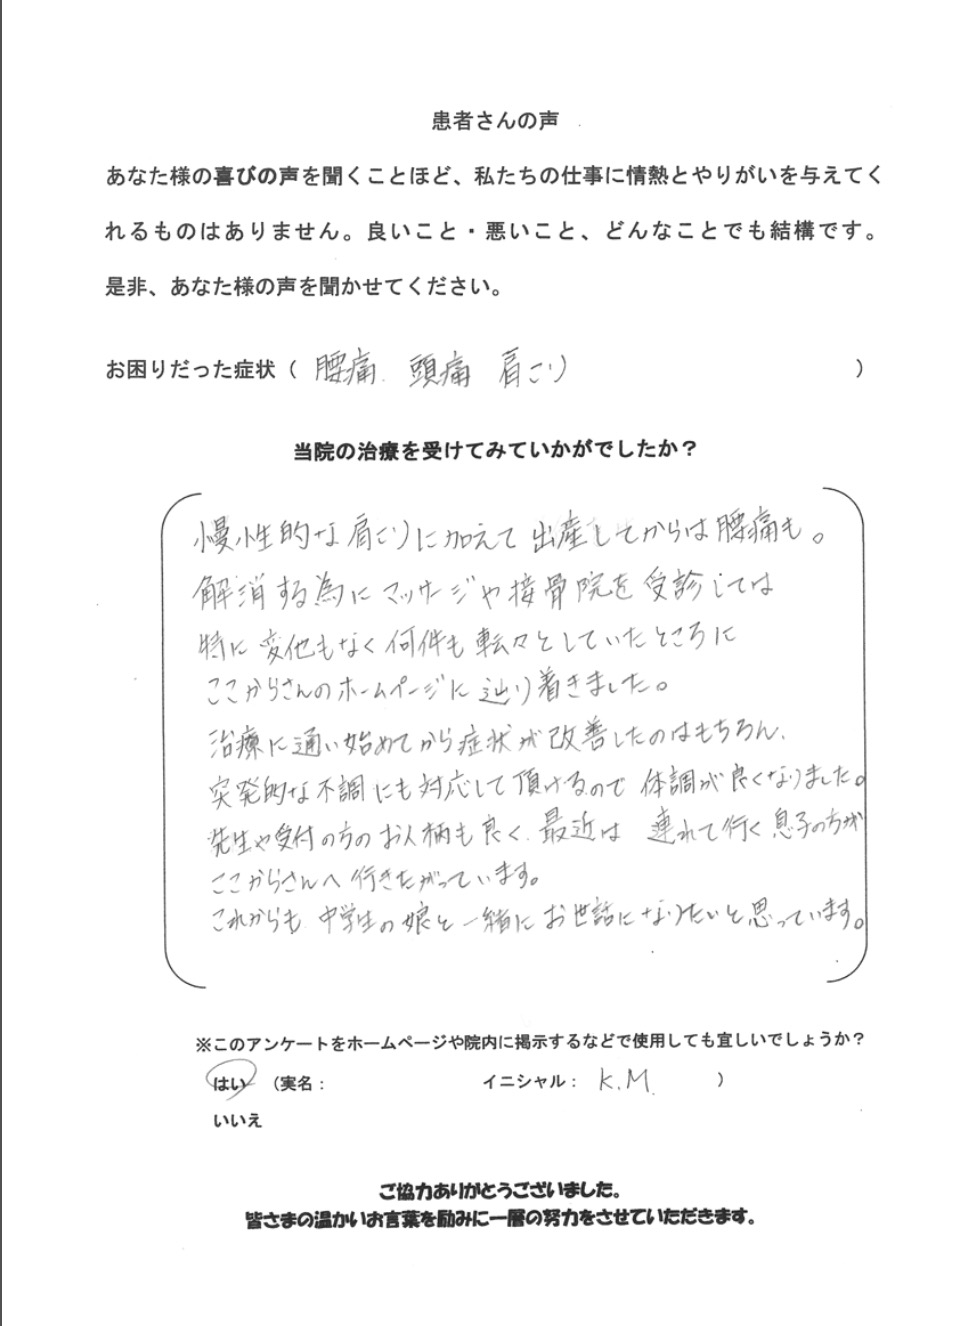 患者さんの声
あなた様の喜びの声を聞くことほど、私たちの仕事に情熱とやりがいを与えてく
れるものはありません。良いこと・悪いこと、どんなことでも結構です。
是非、あなた様の声を聞かせてください。
お困りだった症状（ 腰痛 頭痛 肩こり ）
当院の治療を受けてみていかがでしたか？
慢性的な肩こりに加えて出産してからは腰痛も。
解消する為にマッサージや接骨院を受診しては
特に変化もなく何件も転々としていたところに
ここからさんのホームページに辿り着きました。
治療に通い始めてから症状が改善したのはもちろん、
突発的な不調にも対応して頂けるので体調が良くなりました。
先生や受付の方のお人柄も良く、最近は 連れて行く息子の方が
ここからさんへ行きたがっています。
これからも、中学生の娘と一緒にお世話になりたいと思っています。
※このアンケートをホームページや院内に掲示するなどで使用しても宜しいでしょうか？
はい （実名： イニシャル： K.M. ）
いいえ
ご協力ありがとうございました。
皆さまの温かいお言葉を励みに一層の努力をさせていただきます。